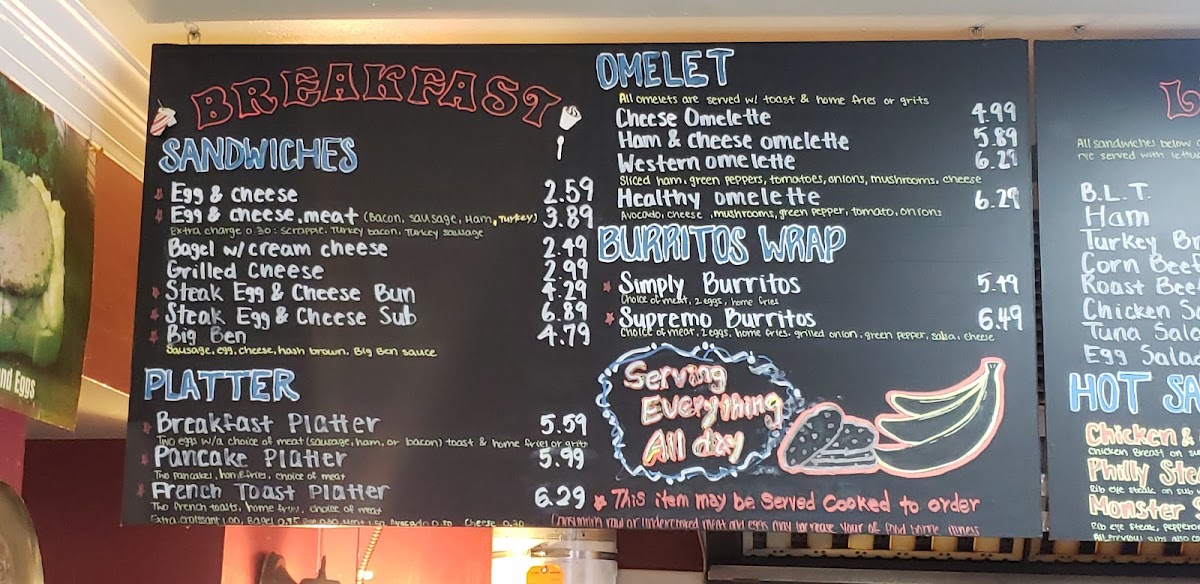 BREAKFAST
SANDWICHES
Egg & cheese 2.59
Egg & cheese, meat (Bacon, sausage, Ham, Turkey) 3.89
Extra charge 0.30: scrapple, Turkey bacon, Turkey sausage
Bagel w/cream cheese 2.49
Grilled Cheese 2.99
Steak Egg & Cheese Bun 4.29
Steak Egg & Cheese Sub 6.89
Big Ben 4.79
Sausage, egg, cheese, hash brown, Big Ben sauce
PLATTER
Breakfast Platter 5.59
Two eggs w/a choice of meat (sausage, ham, or bacon) toast & home fries or grits
Pancake Platter 5.99
Two pancakes, homefries, choice of meat
French Toast Platter 6.29
Two french toasts, home fries, choice of meat
Extra croissant 1.00, Bagel 0.75 Cheese 0.30
OMELET
All omelets are served w/ toast & home fries or grits
Cheese Omelette 4.99
Ham & cheese omelette 5.89
Western omelette 6.29
Sliced ham, green peppers, tomatoes, onions, mushrooms, cheese
Healthy omelette 6.29
Avocado, cheese, mushrooms, green pepper, tomato, onions
BURRITOS WRAP
Simply Burritos 5.49
Choice of meat, 2 eggs, home fries
Supremo Burritos 6.49
Choice of meat, 2 eggs, home fries, grilled onion, green pepper, salsa, cheese
Serving
Everything
All day
This item may be served cooked to order
Consuming raw or undercooked meat and eggs may increase your of food borne illness
All sandwiches below
rye served with lettu
B.L.T.
Ham
Turkey Br
Corn Beef
Roast Beef
Chicken Sa
Tuna Salad
Egg Salad
HOT SA
Chicken &
Chicken Breast on su
Philly Ste
Rib eye steak on sub
Monster
Rib eye steak, peppero
nd Eggs